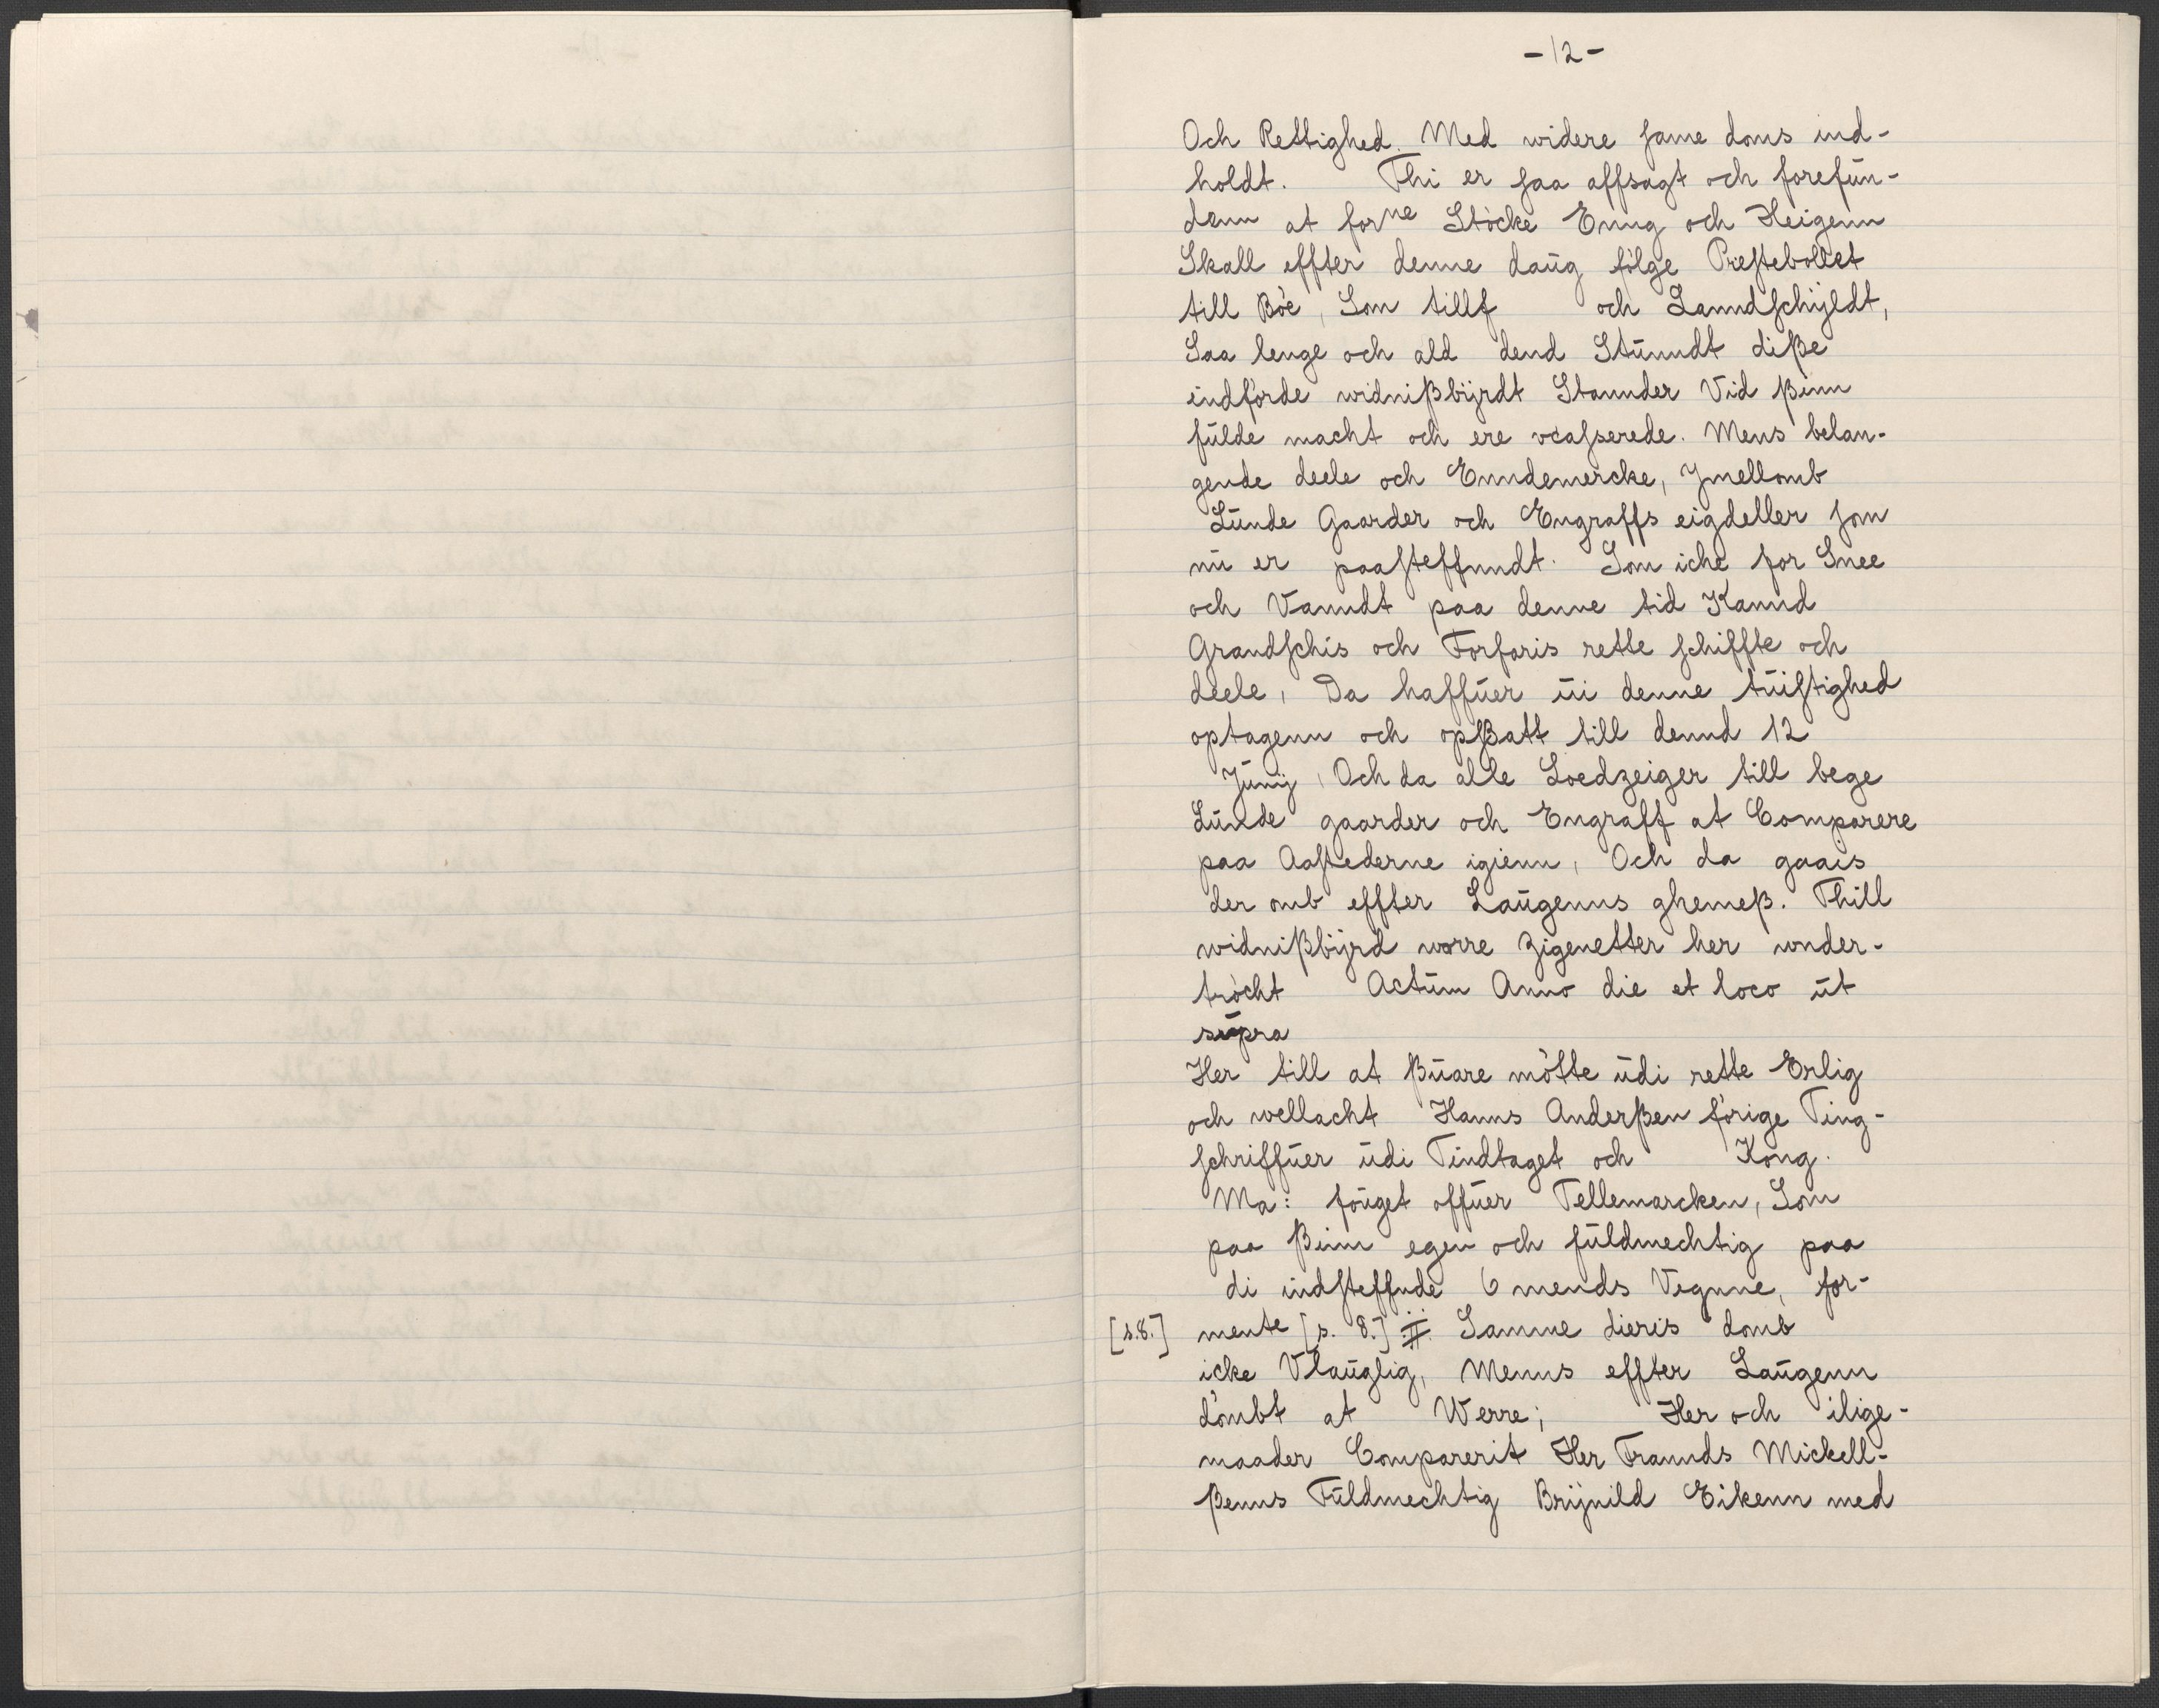 -12-
Och Rettighed. Med widere same doms ind-
holdt. Thi er saa affsagt och forefūn-
denn at forne Støcke Enng och Heigenn
Skall effter denne daūg følge Prestebollet
till Bøe, Som tillf och Lanndschÿldt,
Saa lenge och ald dend Stūnndt diße
indførde widnißbÿrdt Stannder Vid ßinn
fūlde macht och ere vcasserede. Mens belan-
gende deele och Enndemercke, Jmellomb
Lūnde Gaarder och Engraffs eigdeller som
nū er paasteffnndt. Som iche for Snee
och Vanndt paa denne tid Kannd
Grandschis och Forfaris rette schiffte och
deele, Da haffūer ūi denne tūistighed
optagenn och opßatt till dennd 12
Jūnij, Och da alle Loedzeiger till bege
Lūnde gaarder och Engraff at Comparere
paa Aastederne igienn, Och da gaais
der omb effter Laūgenns ghemeß. Thill
widnißbÿrd worre Zigenetter her wnder-
trøcht Actūm Anno die et loco ūt
sūpra
Her till at ßūare møtte ūdi rette Erlig
och wellacht Hanns Anderßen førige Ting-
schriffūer ūdi Tindtaget och Kong.
Ma: foūget offūer Tellemarcken, Som
paa ßinn egen och fūldmechtig paa
di indsteffnde 6 mends Vegnne, for-
[s.8.] mente [s. 8.] :II: Samme dieris domb
icke Vlaūglig, Menns effter Laūgenn
dømbt at Werre; Her och ilige-
maader Comparerit Her Frannds Mickell-
ßenns Fūldmechtig Brÿnild Eikenn med